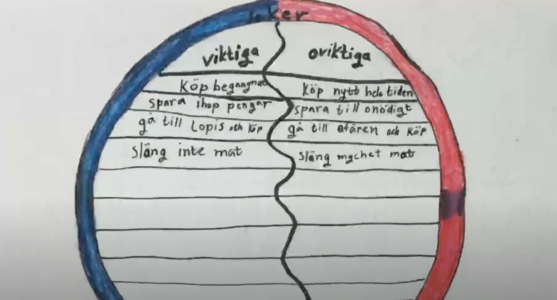 viktiga oviktiga
Köp begagnat köp nytt hela tiden
spara ihop pengar spara till onödigt
gå till Lopis och köp gå till afären och köp
släng inte mat släng mychet mat